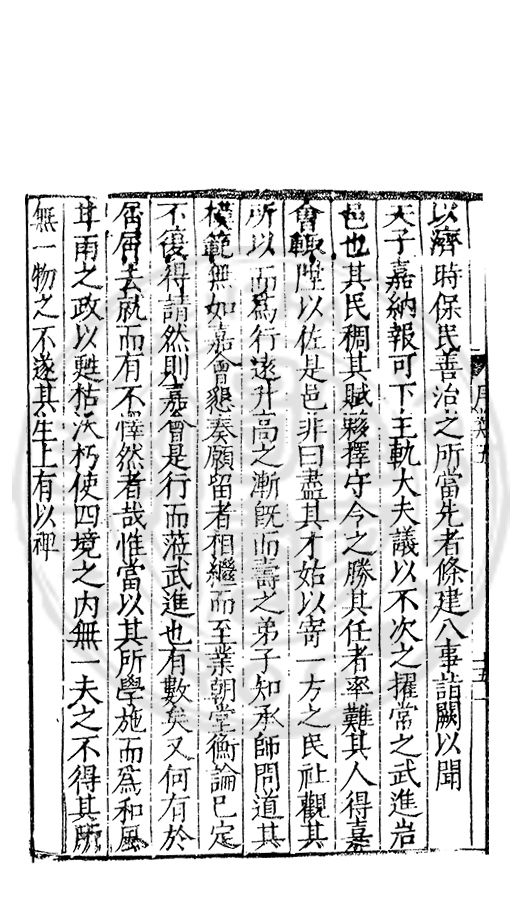 以濟時保民善治之所當先者條建八事詣闕以聞
天子嘉納報可下主執大夫議以不次之擢常之武進岩
邑也其民稠其賦夥擇守令之勝其任者率難其人得嘉
會輙陞以佐是邑非曰盡其才姑以寄一方之民社觀其
所以而為行遠升高之漸旣而壽之弟子知承師問道其
模範無如嘉會懇奏願留者相繼而至業朝堂衡論已定
不復得請然則嘉會是行而蒞武進也有數矣又何有於
屑屑去就而有不懌然者哉惟當以其所學施而爲和風
甘雨之政以甦枯沃朽使四境之内無一夫之不得其所
無一物之不遂其生上有以裨